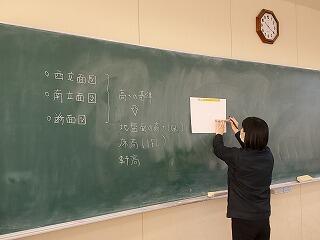 ○西立面図
○南立面図
○断面図
高さの基準
地盤面の高さ(GL)
床高(FL)
軒高